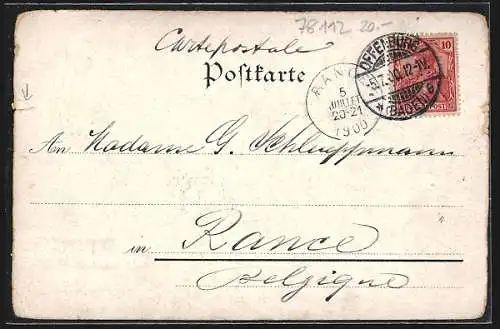 78112 20.-
Cartepostale
Postkarte
RANCE
5
JUILLET
20-21
1900
OFFENBURG
5.7.00.12-1V.
* (BADEN) a
10
POST
An Madame G. Schlueppmann
in Rance
Belgique